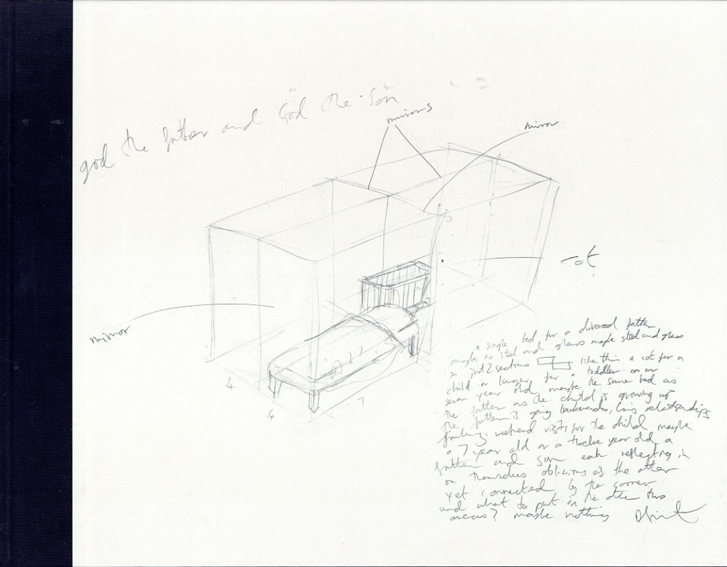 god the father and God the Son
mirrors
mirror
cot
mirror
4
4
7
a single bed for a divorced father
maybe no steel and glass maybe steel and glass
in just 2 sections like this a cot for a
child or larger for a toddler or our
seven year old maybe the same bed as
the father as the child is growing up
the father is going backwards, living relationships
finding weekend visits for the child maybe
a 7 year old or a twelve year old a
father and son each reflecting in
on themselves oblivious of the other
yet connected by the corner
and what to put in the other two
areas? maybe nothing